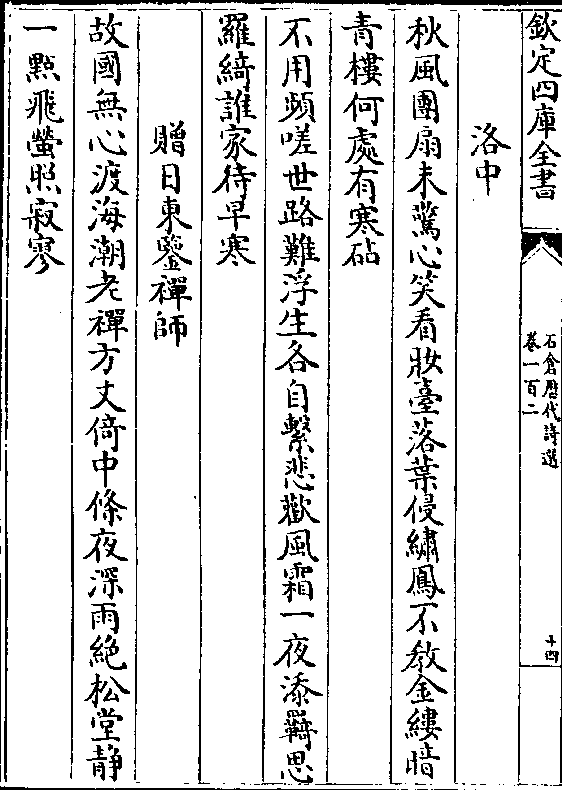 欽定四庫全書
石倉歷代詩選
卷一百二
十四
洛中
秋風團扇未驚心笑看妝臺落葉侵繡鳳不教金縷暗
青樓何處有寒砧
不用頻嗟世路難浮生各自繫悲歡風霜一夜添羇思
羅綺誰家待早寒
贈日東鑒禪師
故國無心渡海潮老禪方丈倚中條夜深雨絶松堂靜
一㸃飛螢照寂寥